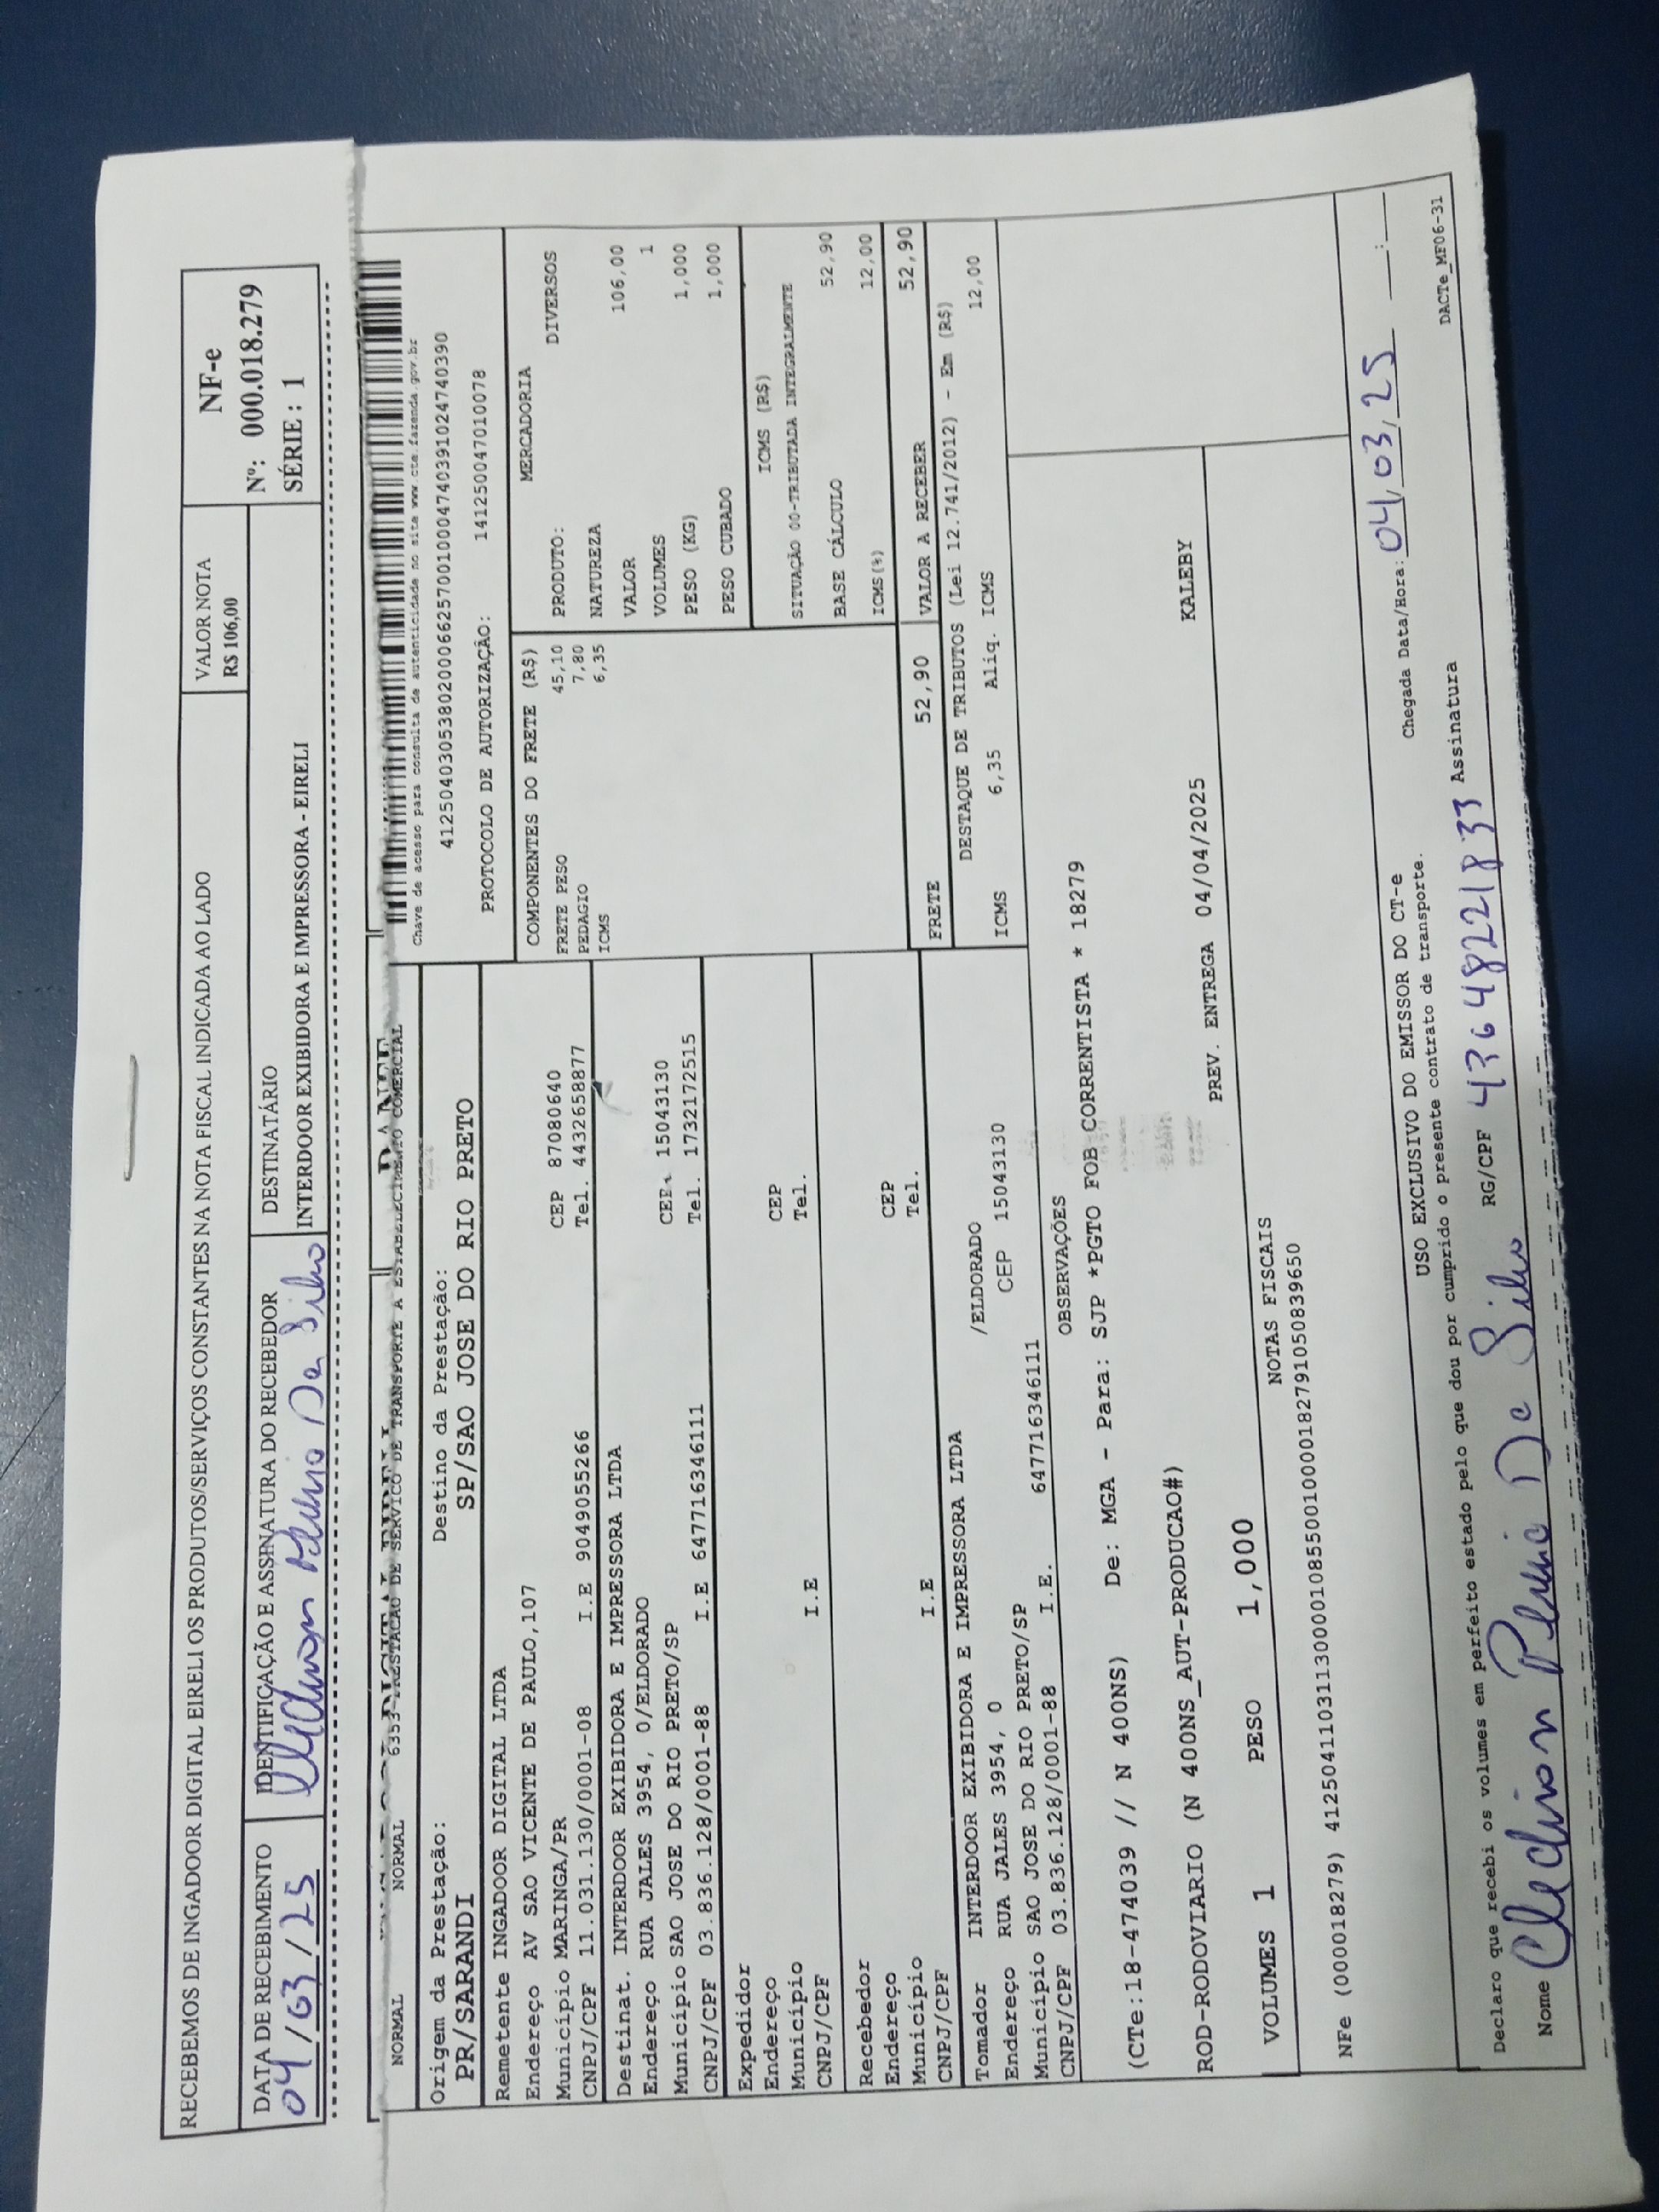 RECEBEMOS DE INGADOOR DIGITAL EIRELI OS PRODUTOS/SERVIÇOS CONSTANTES NA NOTA FISCAL INDICADA AO LADO
VALOR NOTA
R$ 106,00
NF-e
Nº: 000.018.279
SÉRIE : 1
DATA DE RECEBIMENTO
04/03/25
IDENTIFICAÇÃO E ASSINATURA DO RECEBEDOR
Da Silva
DESTINATÁRIO
INTERDOOR EXIBIDORA E IMPRESSORA - EIRELI
NORMAL NORMAL 6353-PRESTACAO DE SERVICO DE TRANSPORTE A ESTABELECIMENTO COMERCIAL
Chave de acesso para consulta de autenticidade no site www.cte.fazenda.gov.br
41250403053802000662570010004740391024740390
PROTOCOLO DE AUTORIZAÇÃO: 141250047010078
Origem da Prestação: Destino da Prestação:
PR/SARANDI SP/SAO JOSE DO RIO PRETO
Remetente INGADOOR DIGITAL LTDA
Endereço AV SAO VICENTE DE PAULO,107
Município MARINGA/PR CEP 87080640
CNPJ/CPF 11.031.130/0001-08 I.E 9049055266 Tel. 4432658877
Destinat. INTERDOOR EXIBIDORA E IMPRESSORA LTDA
Endereço RUA JALES 3954, 0/ELDORADO
Município SAO JOSE DO RIO PRETO/SP CEP. 15043130
CNPJ/CPF 03.836.128/0001-88 I.E 647716346111 Tel. 1732172515
Expedidor
Endereço CEP
Município Tel.
CNPJ/CPF I.E
Recebedor
Endereço CEP
Município Tel.
CNPJ/CPF I.E
Tomador INTERDOOR EXIBIDORA E IMPRESSORA LTDA
Endereço RUA JALES 3954, 0 /ELDORADO
Município SAO JOSE DO RIO PRETO/SP CEP 15043130
CNPJ/CPF 03.836.128/0001-88 I.E. 647716346111
COMPONENTES DO FRETE (R$)
FRETE PESO 45,10
PEDAGIO 7,80
ICMS 6,35
MERCADORIA
PRODUTO: DIVERSOS
NATUREZA
VALOR 106,00
VOLUMES 1
PESO (KG) 1,000
PESO CUBADO 1,000
ICMS (R$)
SITUAÇÃO 00-TRIBUTADA INTEGRALMENTE
BASE CÁLCULO 52,90
ICMS(%) 12,00
FRETE 52,90 VALOR A RECEBER 52,90
DESTAQUE DE TRIBUTOS (Lei 12.741/2012) - Em (R$)
ICMS 6,35 Aliq. ICMS 12,00
OBSERVAÇÕES
(CTe:18-474039 // N 400NS) De: MGA - Para: SJP *PGTO FOB CORRENTISTA * 18279
ROD-RODOVIARIO (N 400NS_AUT-PRODUCAO#) KALEBY
PREV. ENTREGA 04/04/2025
VOLUMES 1 PESO 1,000
NOTAS FISCAIS
NFe (000018279) 41250411031130000108550010000182791050839650
USO EXCLUSIVO DO EMISSOR DO CT-e Chegada Data/Hora: 04/03/25 __:__
Declaro que recebi os volumes em perfeito estado pelo que dou por cumprido o presente contrato de transporte.
Nome De Silva RG/CPF 43648221833 Assinatura
DACTe_MF06-31